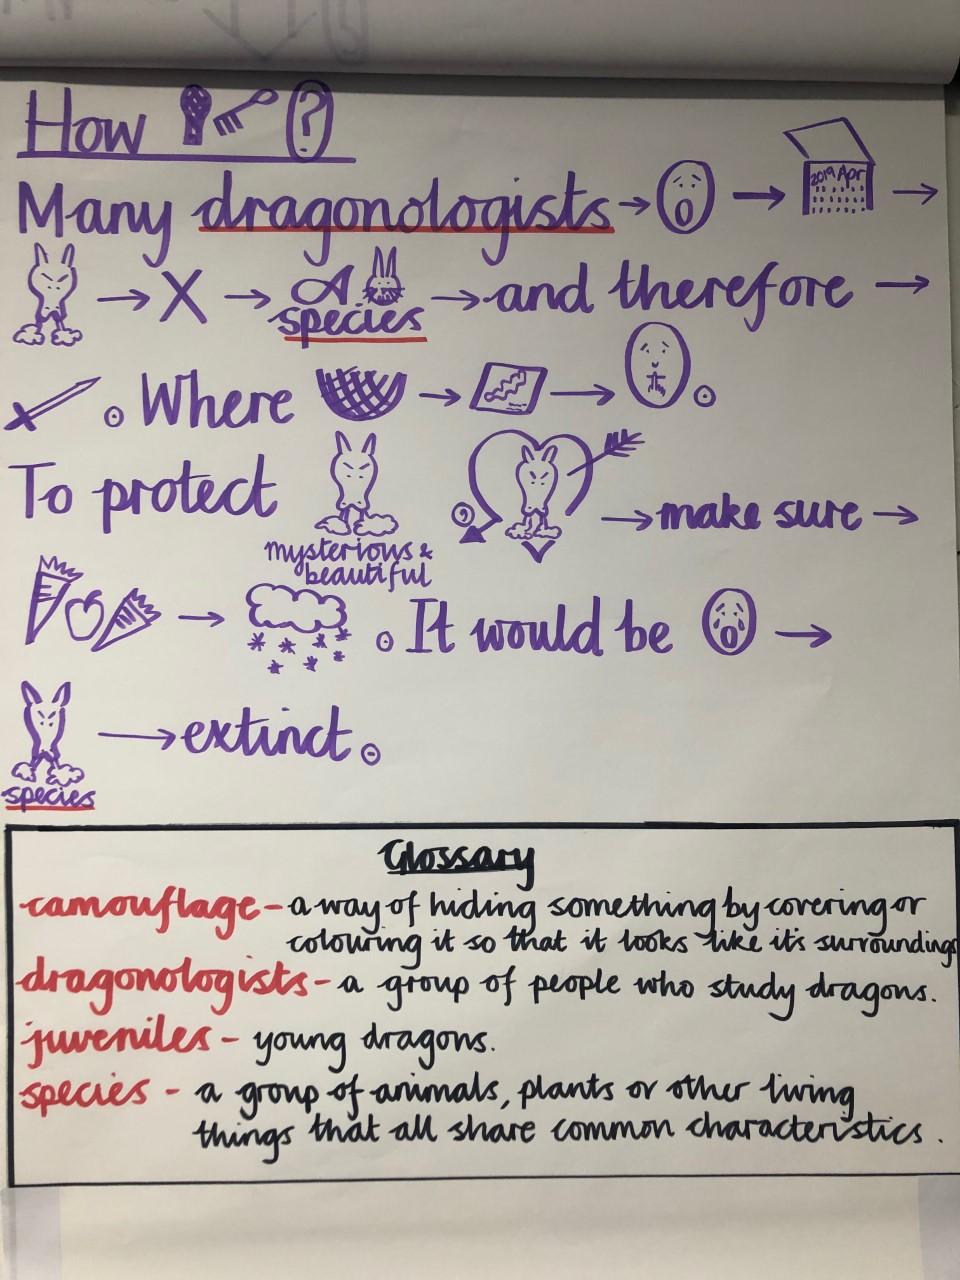 How ?
Many dragonologists
2019 Apr
X
species
and therefore
. Where
.
To protect
mysterious &
beautiful
make sure
. It would be
extinct.
species
Glossary
camouflage - a way of hiding something by covering or
colouring it so that it looks like it's surroundings
dragonologists - a group of people who study dragons.
juveniles - young dragons.
species - a group of animals, plants or other living
things that all share common characteristics.